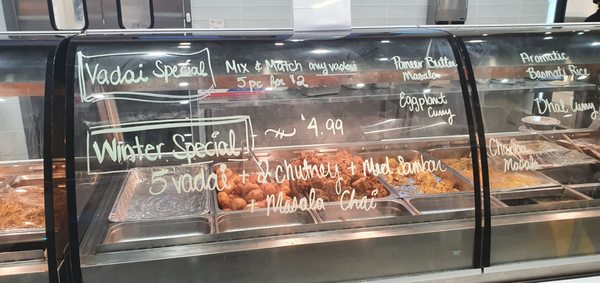 Vadai Special
Mix & Match any vadais
5 pc for $2
Winter Special
$4.99
5 vadai + 2 chutney + Med Sambar
+ Masala Chai
Paneer Butter
Masala
Eggplant
Curry
Aromatic
Basmati Rice
Dhal Curry
Chicken
Masala